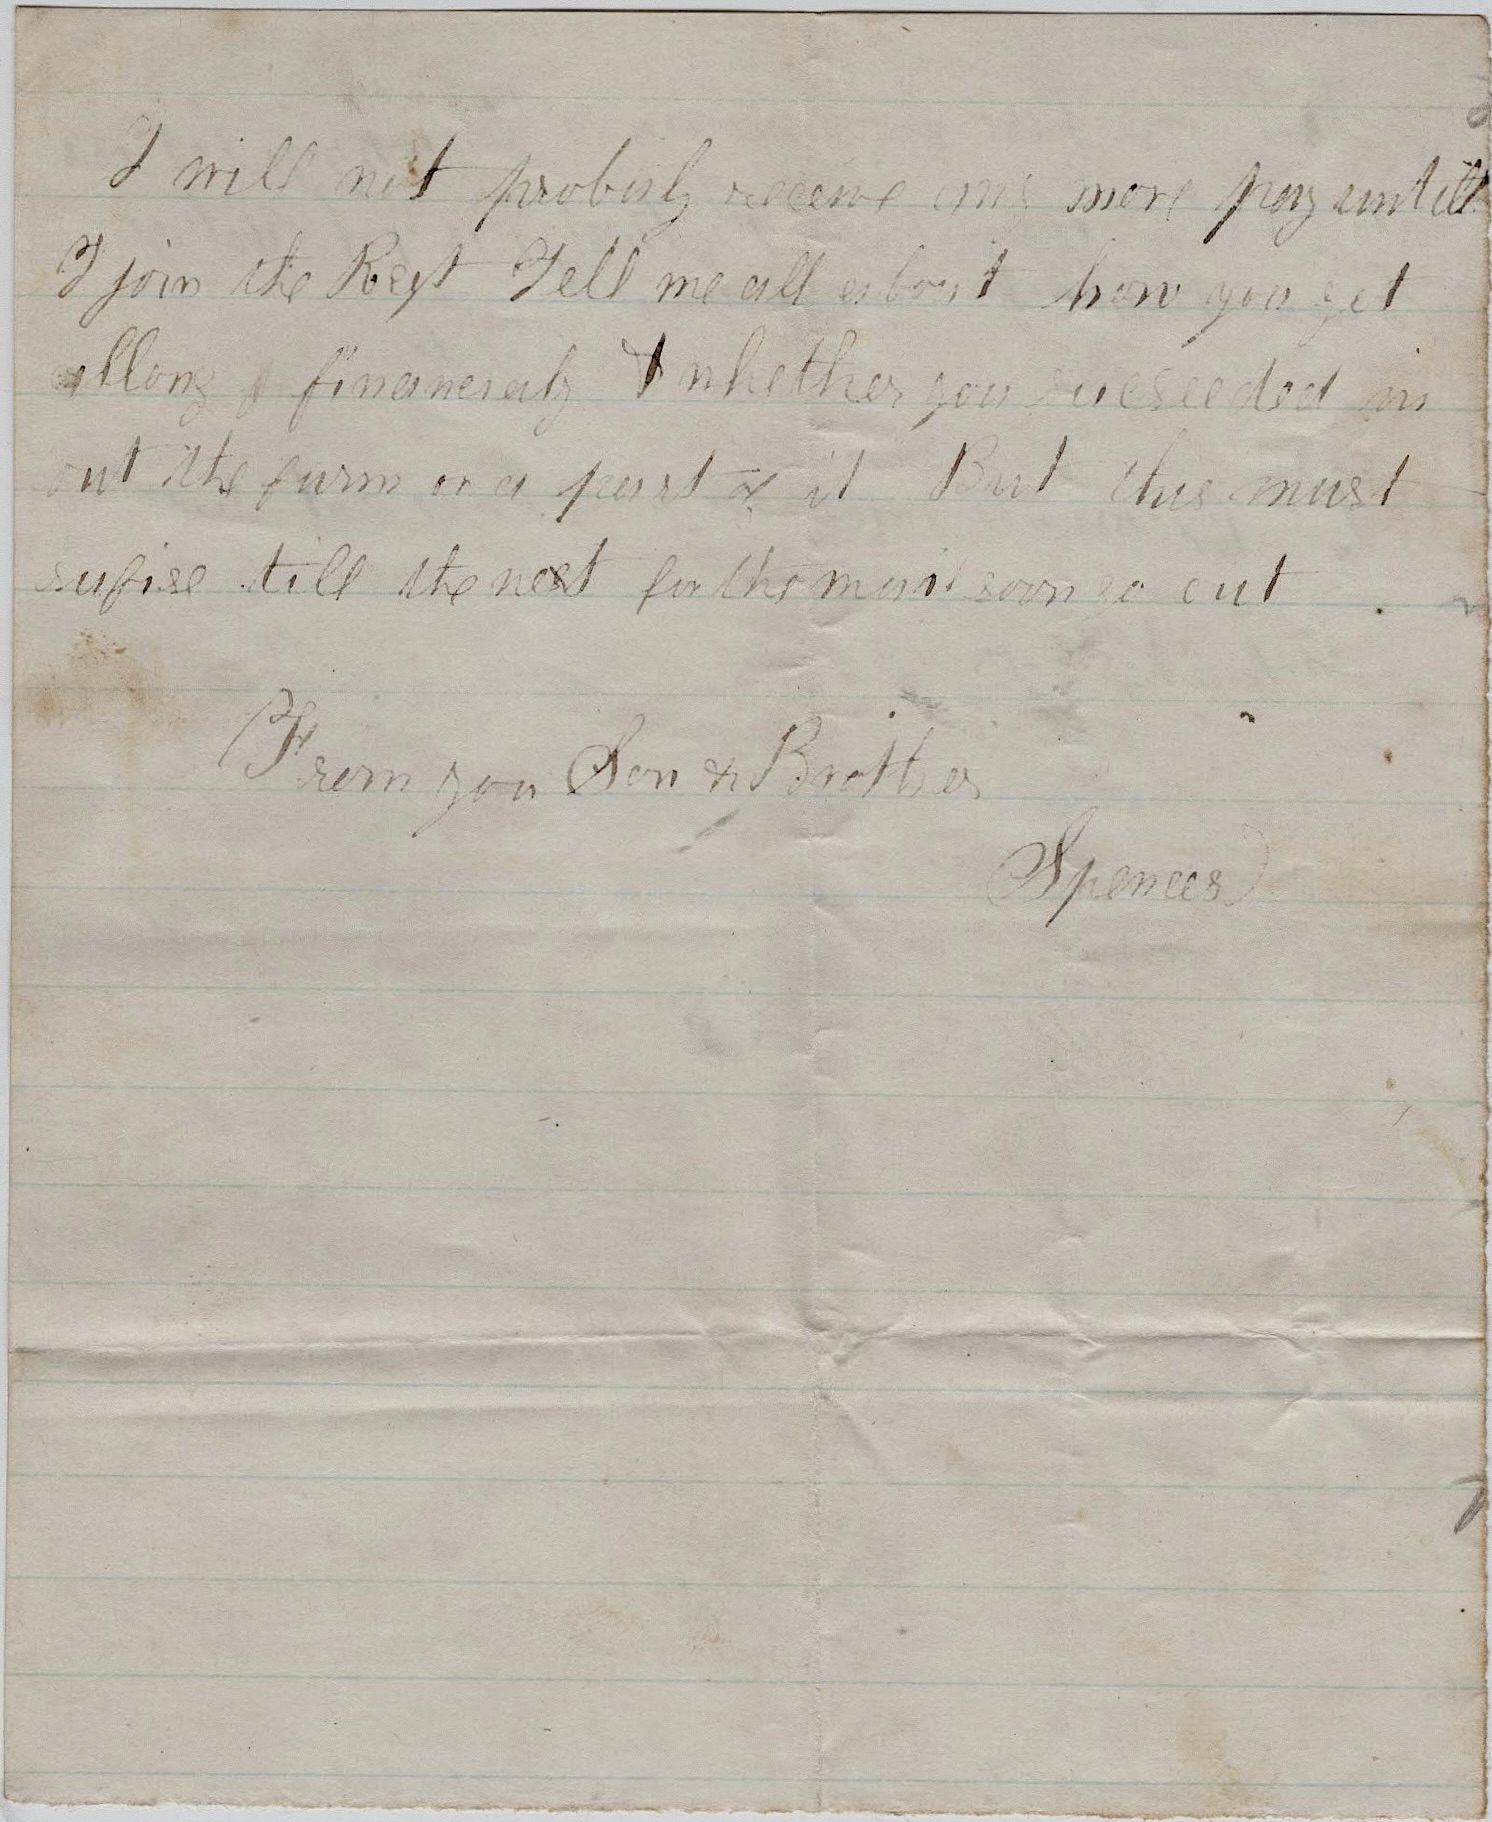 I will not probaly receive any more pay untill
I join the Regt Tell me all about how you get
allong financialy & whether you sucseeded in
out the farm or a part of it But this must
sufise till the next for the mail soon go out
From you Son & Brother
Spencer